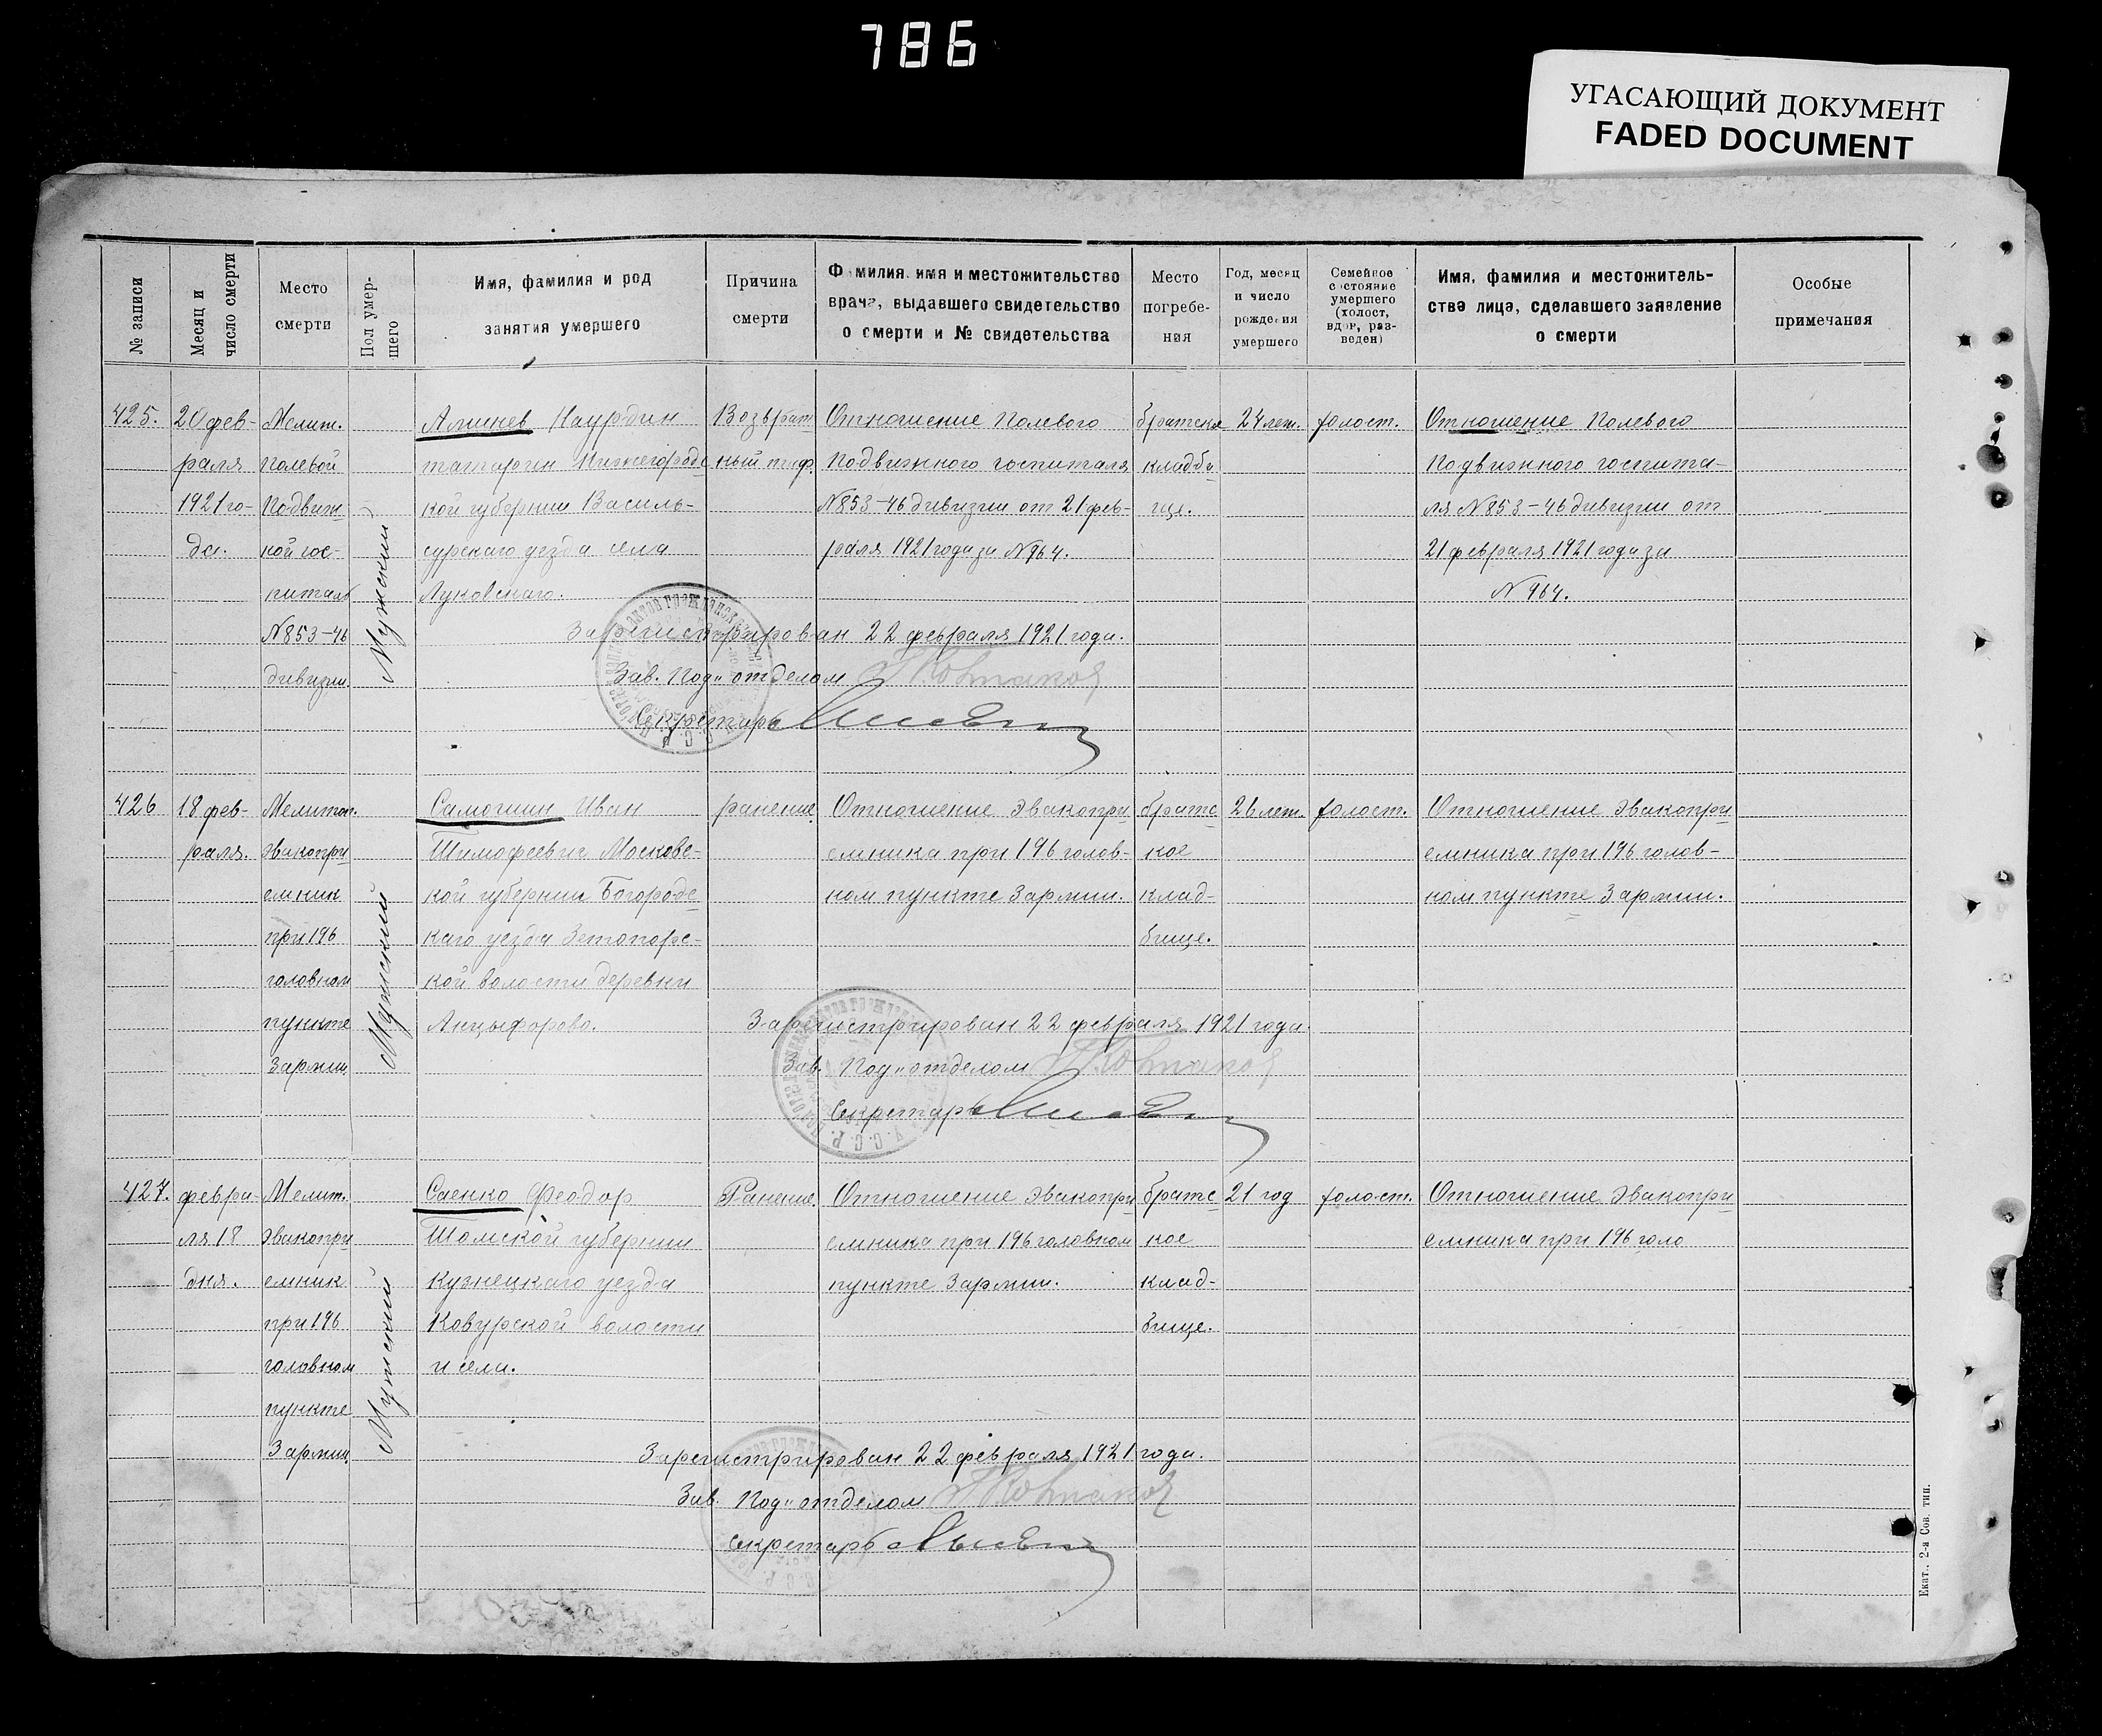 786
УГАСАЮЩИЙ ДОКУМЕНТ
FADED DOCUMENT
№ записи
Месяц и
число смерти
Место
смерти
Пол умер-
шего
Имя, фамилия и род
занятия умершего
Причина
смерти
Фамилия, имя и местожительство
врача, выдавшего свидетельство
о смерти и № свидетельства
Место
погребе-
ния
Год, месяц
и число
рождения
умершего
Семейное
состояние
умершего
(холост,
вдов, раз-
веден)
Имя, фамилия и местожитель-
ства лица, сделавшего заявление
о смерти
Особые
примечания
425.
20 фев-
раля
1921 го-
да.
Мелит.
полевой
Подвиж
ной гос-
питаль
N853-46
дивизии
Мужский
Аминев Наурдин
татарин Нижегородс
кой губернии Василь-
сурскаго уезда села
Луковскаго.
Возврат
ный тиф.
Отношение Полевого
Подвижного госпиталя
N853-46 дивизии от 21 фев-
раля 1921 года за N964.
братское
кладби
ще.
24 лет.
холост.
Отношение Полевого
Подвижного госпита-
ля N853-46 дивизии от
21 февраля 1921 года за
N 964.
Зарегистрирован 22 февраля 1921 года.
Зав. Под" отделом
Секретарь
426
18 фев-
раля.
Мелитоп.
эвакопри
емник
при 196
головном
пункте
3 армии
Мужский
Самошин Иван
Тимофеевич Московс-
кой губернии Богородс
каго уезда
кой волости деревни
Анцыфорово.
ранение
Отношение эвакопри
емника при 196 голов-
ном пункте 3 армии.
братс
кое
клад-
бище.
26 лет.
холост.
Отношение эвакопри
емника при 196 голов-
ном пункте 3 армии.
Зарегистрирован 22 февраля 1921 года.
Зав. Под" отделом
Секретарь
У.С.С.Р.
427.
февра-
ля 18
дня.
Мелит.
эвакопри
емник
при 196
головном
пункте
3 армии
Мужский
Саенко Феодор
Томской губернии
Кузнецкаго уезда
Ковурской волости
и села.
Ранение.
Отношение эвакопри
емника при 196 головном
пункте 3 армии.
братс
кое
клад-
бище.
21 год
холост.
Отношение эвакопри
емника при 196 голо
Зарегистрирован 22 февраля 1921 года.
Зав. Под" отделом
Секретарь
Екат. 2-я Сов. тип.